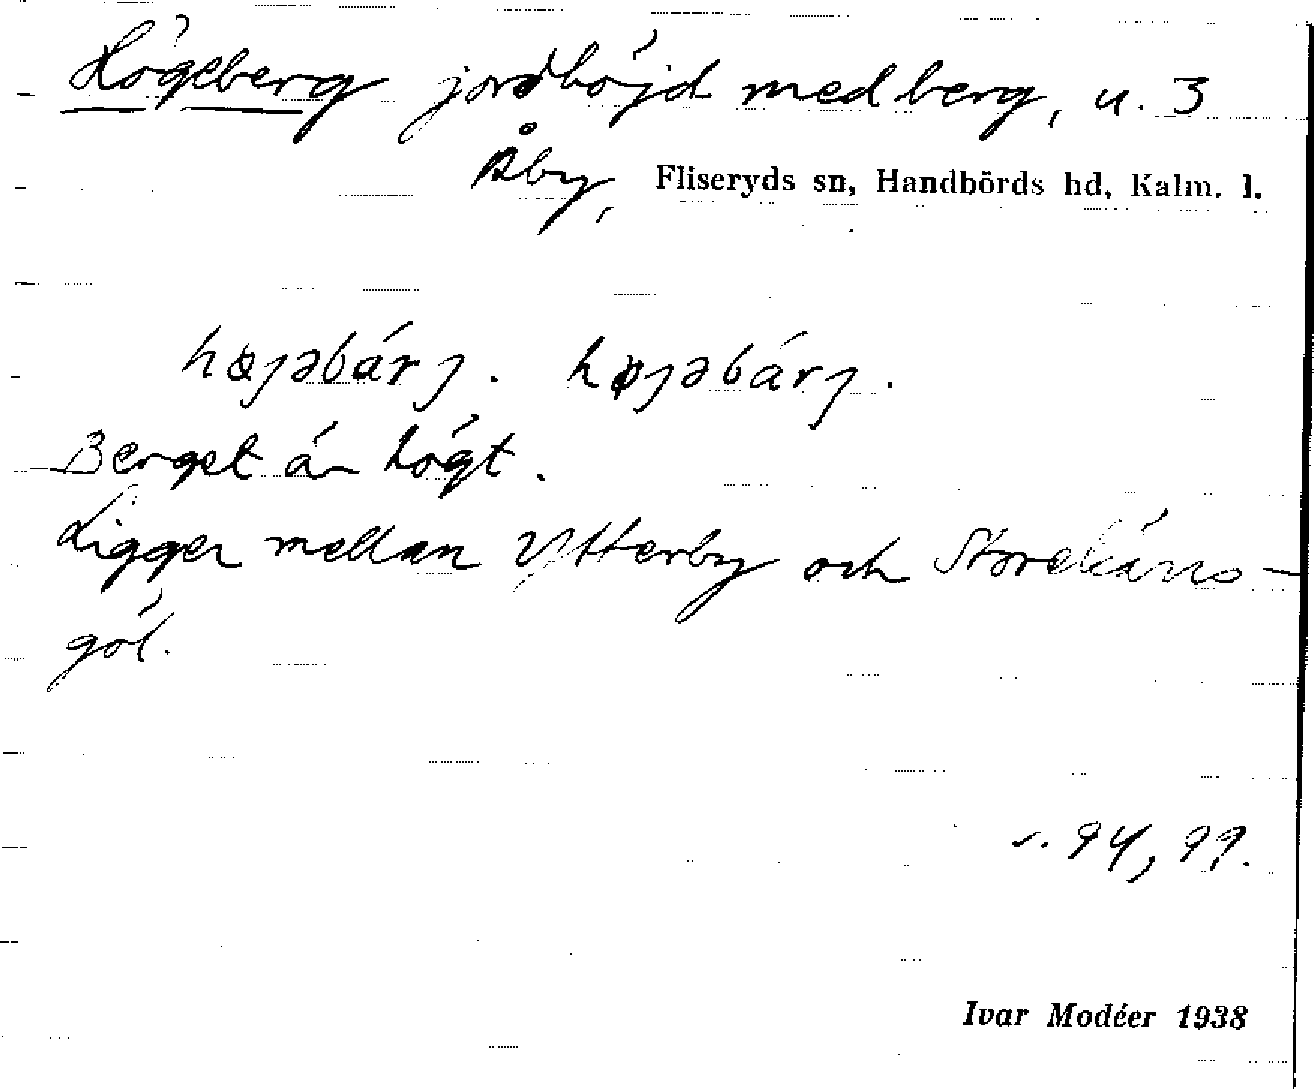 Högeberg jordhöjd med berg, u. 3
Åby, Fliseryds sn, Handbörds hd, Kalm. l.
højəbárj. højəbárj.
Berget är högt.
Ligger mellan Ytterby och Storekärrs-
göl.
94, 99.
Ivar Modéer 1938